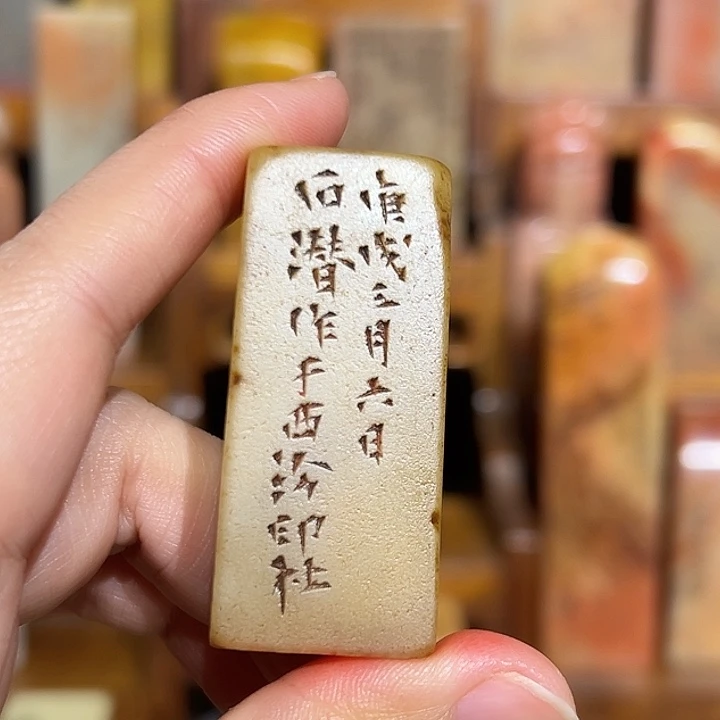 庚戌三月六日
石潜作于西泠印社